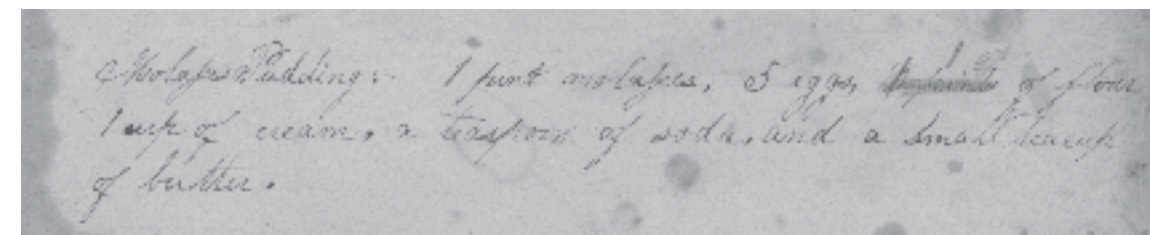 Molasses Pudding:- 1 pint molasses, 5 eggs, of flour
1 cup of cream, a teaspoon of soda, and a small teacup
of butter.